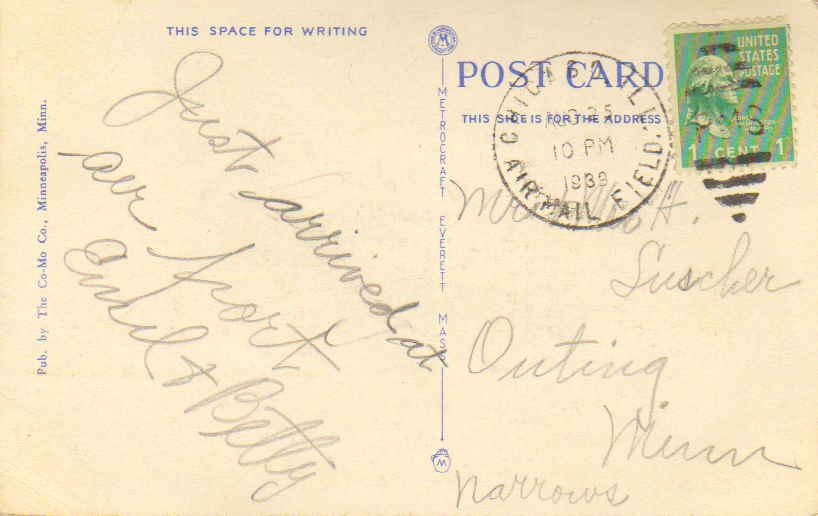 THIS SPACE FOR WRITING
Just arrived at
air port
Emil & Betty
Pub. by The Co-Mo Co., Minneapolis, Minn.
METROCRAFT EVERETT MASS
POST CARD
THIS SIDE IS FOR THE ADDRESS
CHICAGO ILL.
AUG 25
10 PM
1939
AIR MAIL FIELD
UNITED
STATES
POSTAGE
1 CENT 1
H.
Suscher
Outing
Minn
Narrows